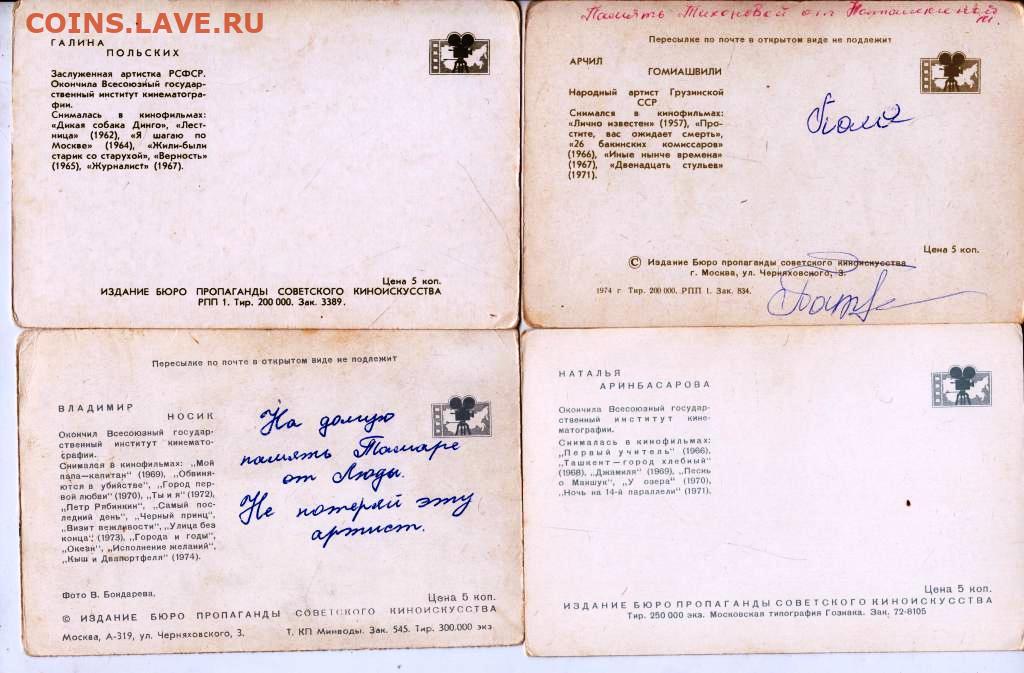 COINS.LAVE.RU
ГАЛИНА
ПОЛЬСКИХ
Заслуженная артистка РСФСР.
Окончила Всесоюзный государ-
ственный институт кинематогра-
фии.
Снималась в кинофильмах:
«Дикая собака Динго», «Лест-
ница» (1962), «Я шагаю по
Москве» (1964), «Жили-были
старик со старухой», «Верность»
(1965), «Журналист» (1967).
Цена 5 коп.
ИЗДАНИЕ БЮРО ПРОПАГАНДЫ СОВЕТСКОГО КИНОИСКУССТВА
РПП 1. Тир. 200 000. Зак. 3389.
Память Тихоновой от
Пересылке по почте в открытом виде не подлежит
АРЧИЛ
ГОМИАШВИЛИ
Народный артист Грузинской
ССР
Снимался в кинофильмах:
«Лично известен» (1957), «Про-
стите, вас ожидает смерть»,
«26 бакинских комиссаров»
(1966), «Иные нынче времена»
(1967), «Двенадцать стульев»
(1971).
Цена 5 коп.
© Издание Бюро пропаганды советского киноискусства
г. Москва, ул. Черняховского, 3.
1974 г Тир. 200 000. РПП 1. Зак. 834.
Пересылке по почте в открытом виде не подлежит
ВЛАДИМИР
НОСИК
Окончил Всесоюзный государ-
ственный институт кинемато-
графии.
Снимался в кинофильмах: „Мой
папа—капитан" (1969), „Обвиня-
ются в убийстве", „Город пер-
вой любви" (1970), „Ты и я" (1972),
„Петр Рябинкин", „Самый пос-
ледний день", „Черный принц",
„Визит вежливости", „Улица без
конца" (1973), „Города и годы",
„Океан", „Исполнение желаний",
„Кыш и Двапортфеля" (1974).
На долгую
память Тамаре
от Люды.
Не потеряй эту
артист.
Фото В. Бондарева.
Цена 5 коп.
© ИЗДАНИЕ БЮРО ПРОПАГАНДЫ СОВЕТСКОГО КИНОИСКУССТВА
Москва, А-319, ул. Черняховского, 3. Т. КП Минводы. Зак. 545. Тир. 300.000 экз.
НАТАЛЬЯ
АРИНБАСАРОВА
Окончила Всесоюзный государ-
ственный институт кине-
матографии.
Снималась в кинофильмах:
"Первый учитель" (1966),
"Ташкент—город хлебный"
(1968), „Джамиля" (1969), „Песнь
о Маншук", „У озера" (1970),
„Ночь на 14-й параллели" (1971).
Цена 5 коп.
ИЗДАНИЕ БЮРО ПРОПАГАНДЫ СОВЕТСКОГО КИНОИСКУССТВА
Тир. 250 000 экз. Московская типография Гознака. Зак. 72-8105